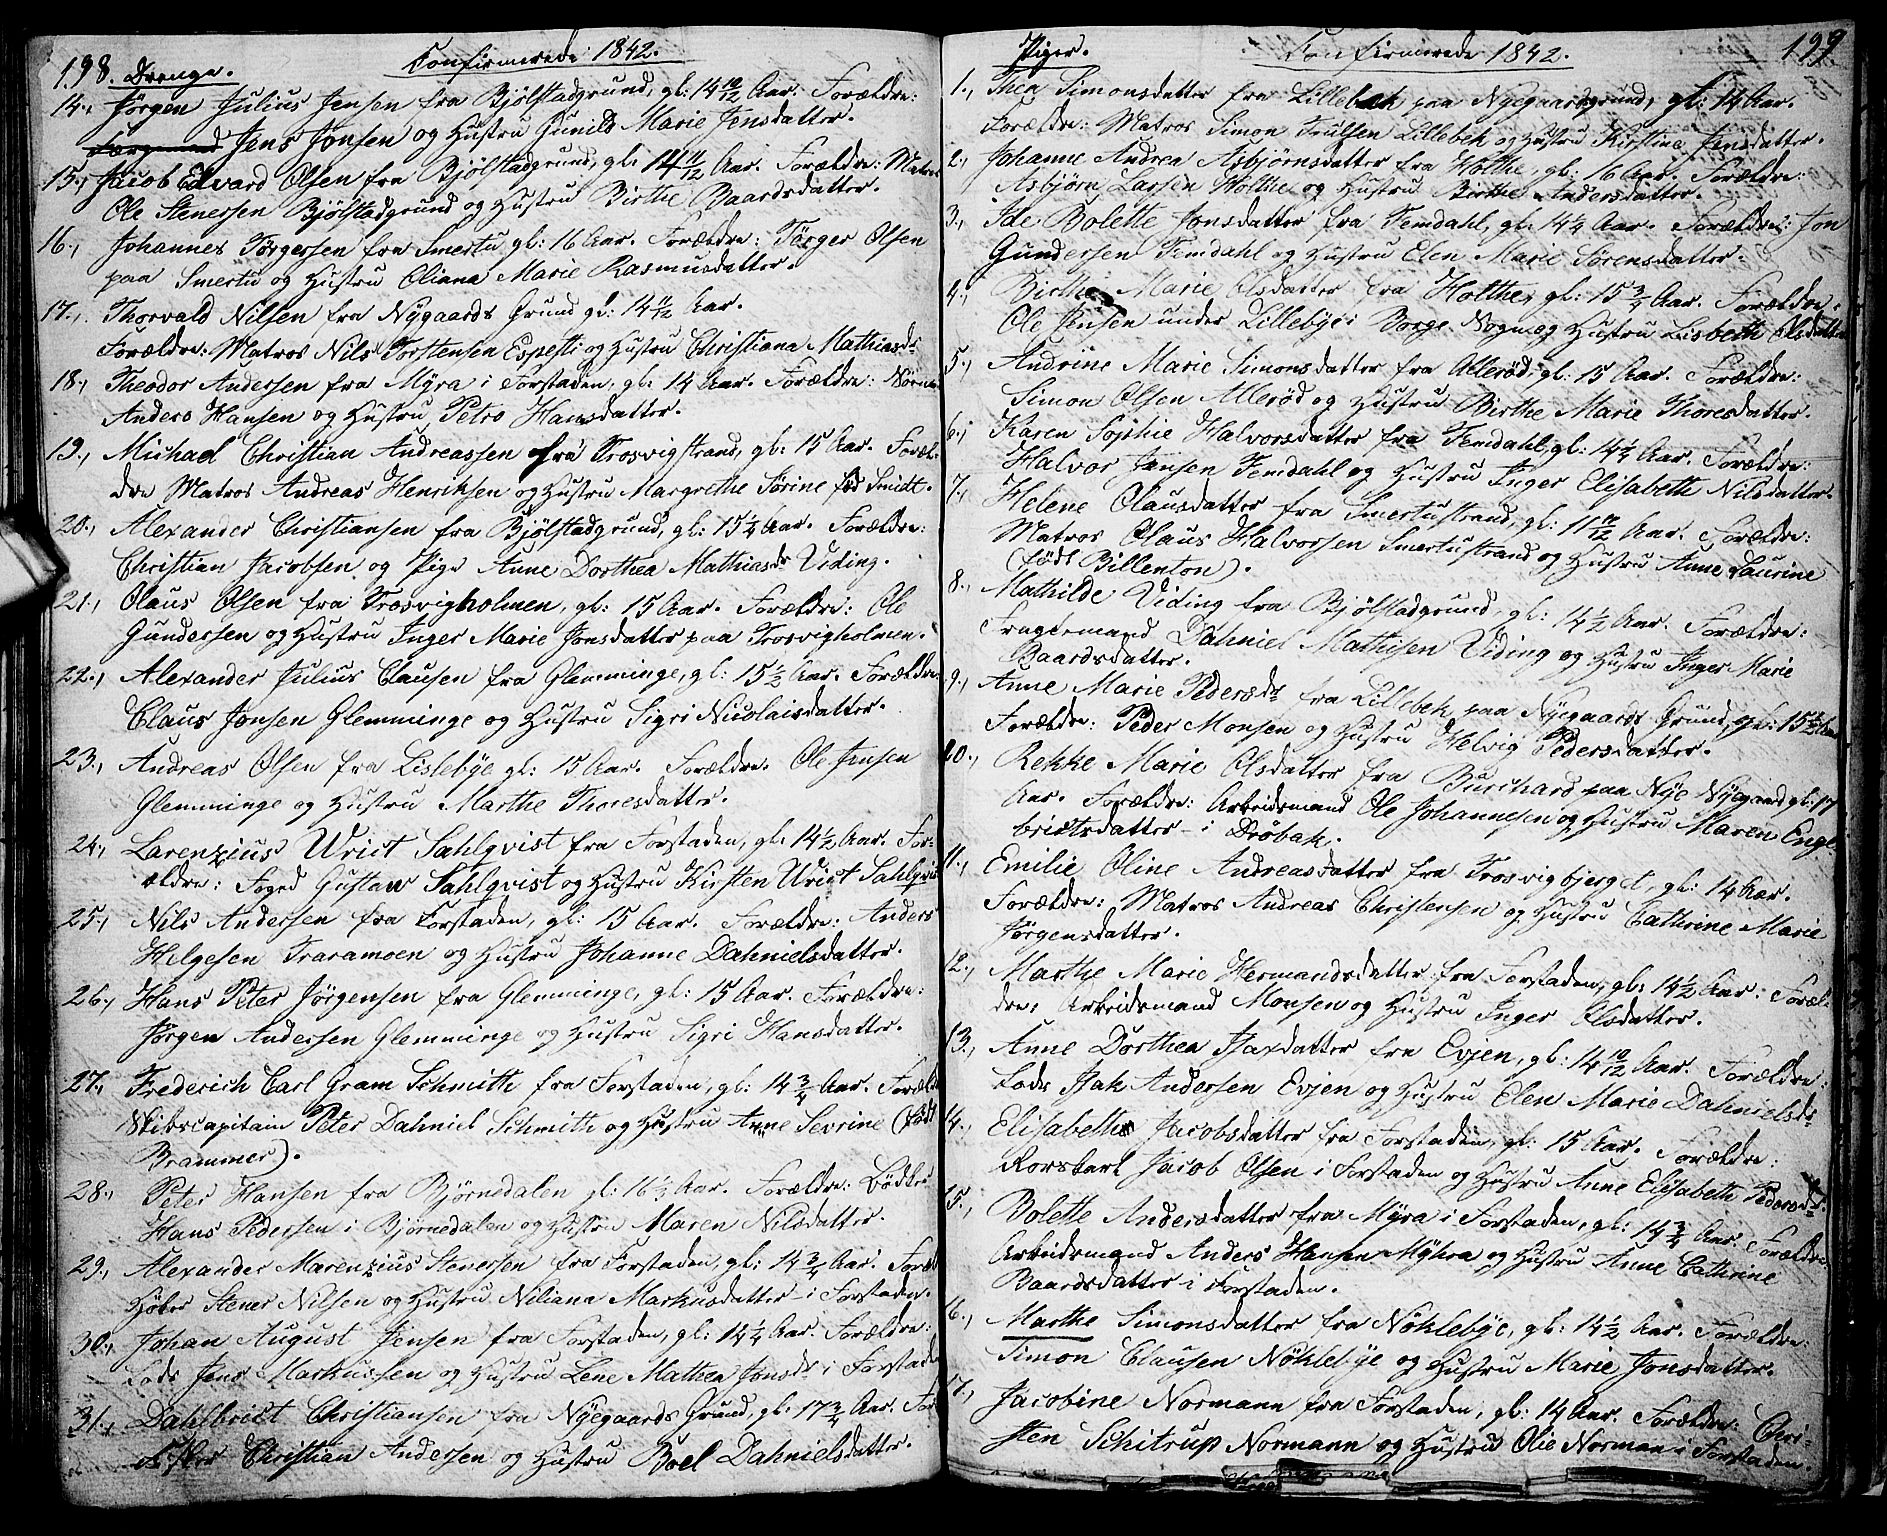 198. Drenge.
Confirmerede 1842.
14., Jørgen Julius Jensen fra Bjølstadgrund, gl: 14 10/12 Aar. Forældre:
Jens Jonsen og Hustru Gunild Marie Jensdatter.
15., Jacob Edvard Olsen fra Bjølstadgrund, gl: 14 11/12 Aar. Forældre: Matros
Ole Stenersen Bjølstadgrund og Hustru Birthe Baardsdatter.
16., Johannes Törgersen fra Smertu gl: 16 Aar. Forældre: Törger Olsen
paa Smertu og Hustru Oliana Marie Rasmusdatter.
17., Thorvald Nilsen fra Nygaards Grund gl: 14 11/12 Aar.
Forældre: Matros Nils Torstensen Espesti og Hustru Christiana Mathiasdr
18., Theodor Andersen fra Mÿra i Forstaden, gl: 14 Aar. Forældre:
Anders Hansen og Hustru Petro Hansdatter.
19., Michael Christian Andreassen fra Trosvigstrand, gl: 15 Aar. Foræl-
dre Matros Andreas Henriksen og Hustru Margrethe Sörine fød Smidt.
20., Alexander Christiansen fra Bjølstadgrund, gl: 15 1/4 Aar. Forældre:
Christian Jacobsen og Pige Anne Dorthea Mathiasdr Viding.
21., Olaus Olsen fra Trosvigholmen, gl: 15 Aar. Forældre: Ole
Gundersen og Hustru Inger Marie Jonsdatter paa Trosvigholmen.
22., Alexander Julius Clausen fra Glemminge, gl: 15 1/2 Aar. Forældre
Claus Jonsen Glemminge og Hustru Sigri Nicolaisdatter.
23., Andreas Olsen fra Lislebye gl: 15 Aar. Forældre. Ole Jensen
Glemminge og Hustru Marthe Thoresdatter.
24., Larenzius Wrict Sahlqvist fra Forstaden, gl: 14 1/2 Aar. For-
ældre: Foged Gustaw Sahlqvist og Hustru Kirsten Wrict Sahlqvist
25., Nils Andersen fra Forstaden, gl: 15 Aar. Forældre: Anders
Helgesen Traramoen og Hustru Johanne Dahnielsdatter.
26., Hans Peter Jörgensen fra Glemminge, gl: 15 Aar. Forældre:
Jørgen Andersen Glemminge og Hustru Sigri Hansdatter.
27., Frederich Carl Gram Schmith fra Forstaden, gl: 14 3/4 Aar. Foræld
Skibscapitain Peter Dahniel Schmith og Hustru Anne Sevrine (født
Brammer).
28., Peter Hansen fra Bjørnedalen gl: 16 1/2 Aar. Forældre: Bödker
Hans Pedersen i Bjørnedalen og Hustru Maren Nilsdatter.
29., Alexander Marenzius Stenersen fra Forstaden, gl: 14 3/4 Aar. Foræl
Stener Nilsen og Hustru Niliana Markusdatter i Forstaden.
30., Johan August Jensen fra Forstaden, gl: 14 1/4 Aar. Forældre:
Lods Jens Markussen og Hustru Lene Mathea Jonsdr i Forstaden
31., Dahlbrict Christiansen fra Nyegaards Grund, gl: 17 3/4 Aar. For
Christian Andersen og Hustru Boel Dahnielsdatter.
Piger.
Confirmerede 1842.
199
1., Thea Simonsdatter fra Lillebek paa Nyegaardsgrund, gl: 14 Aar.
Forældre: Matros Simon Trulsen Lillebek og Hustru Kirstine Jensdatter.
2., Johanne Andrea Asbjørnsdatter fra Holthe, gl: 16 Aar. Forældre:
Asbjørn Larsen Holthe og Hustru Birthe Andersdatter.
3., Ide Bolette Jonsdatter fra Temdahl, gl: 14 1/4 Aar. Forældre: Jon
Gundersen Temdahl og Hustru Elen Marie Sörensdatter.
4., Birthe Marie Olsdatter fra Holthe, gl: 15 3/4 Aar. Forældre:
Ole Jensen under Lillebye i Borge Sogn og Hustru Lisbeth Olsdatter
5., Andrine Marie Simonsdatter fra Alleröd, gl: 15 Aar. Forældre:
Simon Olsen Alleröd og Hustru Birthe Marie Thoresdatter.
6., Karen Sophie Halvorsdatter fra Temdahl, gl: 14 1/2 Aar. Forældre:
Halvor Jensen Temdahl og Hustru Inger Elisabeth Nilsdatter.
7., Helene Olausdatter fra Smertustrand, gl: Aar. Forældre:
Matros Olaus Halvorsen Smertustrand og Hustru Anne Laurine
(født Billenton).
8., Mathilde Viding fra Bjølstadgrund, gl: 14 1/2 Aar. Forældre:
Dahniel Mathisen Viding og Hustru Inger Marie
Baardsdatter.
9., Anne Marie Pedersdr fra Lillebek paa Nyegaards Grund, gl: 15
Forældre: Peder Monsen og Hustru Helvig Pedersdatter.
10., Rekke Marie Olsdatter fra Burchard paa Nye Nyegaard gl: 17
Aar. Forældre: Arbeidsmand Ole Johannesen og Hustru Maren Engl-
brictsdatter i Dröbak.
11., Emilie Oline Andreasdatter fra Trosvigbjerget, gl: 14 Aar.
Forældre: Matros Andreas Christensen og Hustru Cathrine Marie
Jörgensdatter.
12., Marthe Marie Hermandsdatter fra Forstaden, gl: 14 1/2 Aar: Foræl-
dre: Arbeidsmand Monsen og Hustru Inger Olsdatter.
13., Anne Dorthea Isaxdatter fra Evjen, gl: 14 10/12 Aar. Forældre:
Lods Isak Andersen Evjen og Hustru Elen Marie Dahnielsdr
14., Elisabeth Jacobsdatter fra Forstaden, gl: 15 Aar. Forældre:
Rorskarl Jacob Olsen i Forstaden og Hustru Anne Elisabeth Pedersdr.
15., Bolette Andersdatter fra Mÿra i Forstaden, gl: 14 3/4 Aar. Forældre
Arbeidsmand Anders Hansen Mÿhra og Hustru Anne Cathrine
Baardsdatter i Forstaden.
16., Marthe Simonsdatter fra Nöklebye, gl: 14 1/2 Aar. Forældre:
Simon Clausen Nöklebye og Hustru Marie Jonsdatter.
17., Jacobine Normann fra Forstaden, gl: 14 Aar. Forældre: Chri-
sten Schitrup Normann og Hustru Olie Norman i Forstaden.